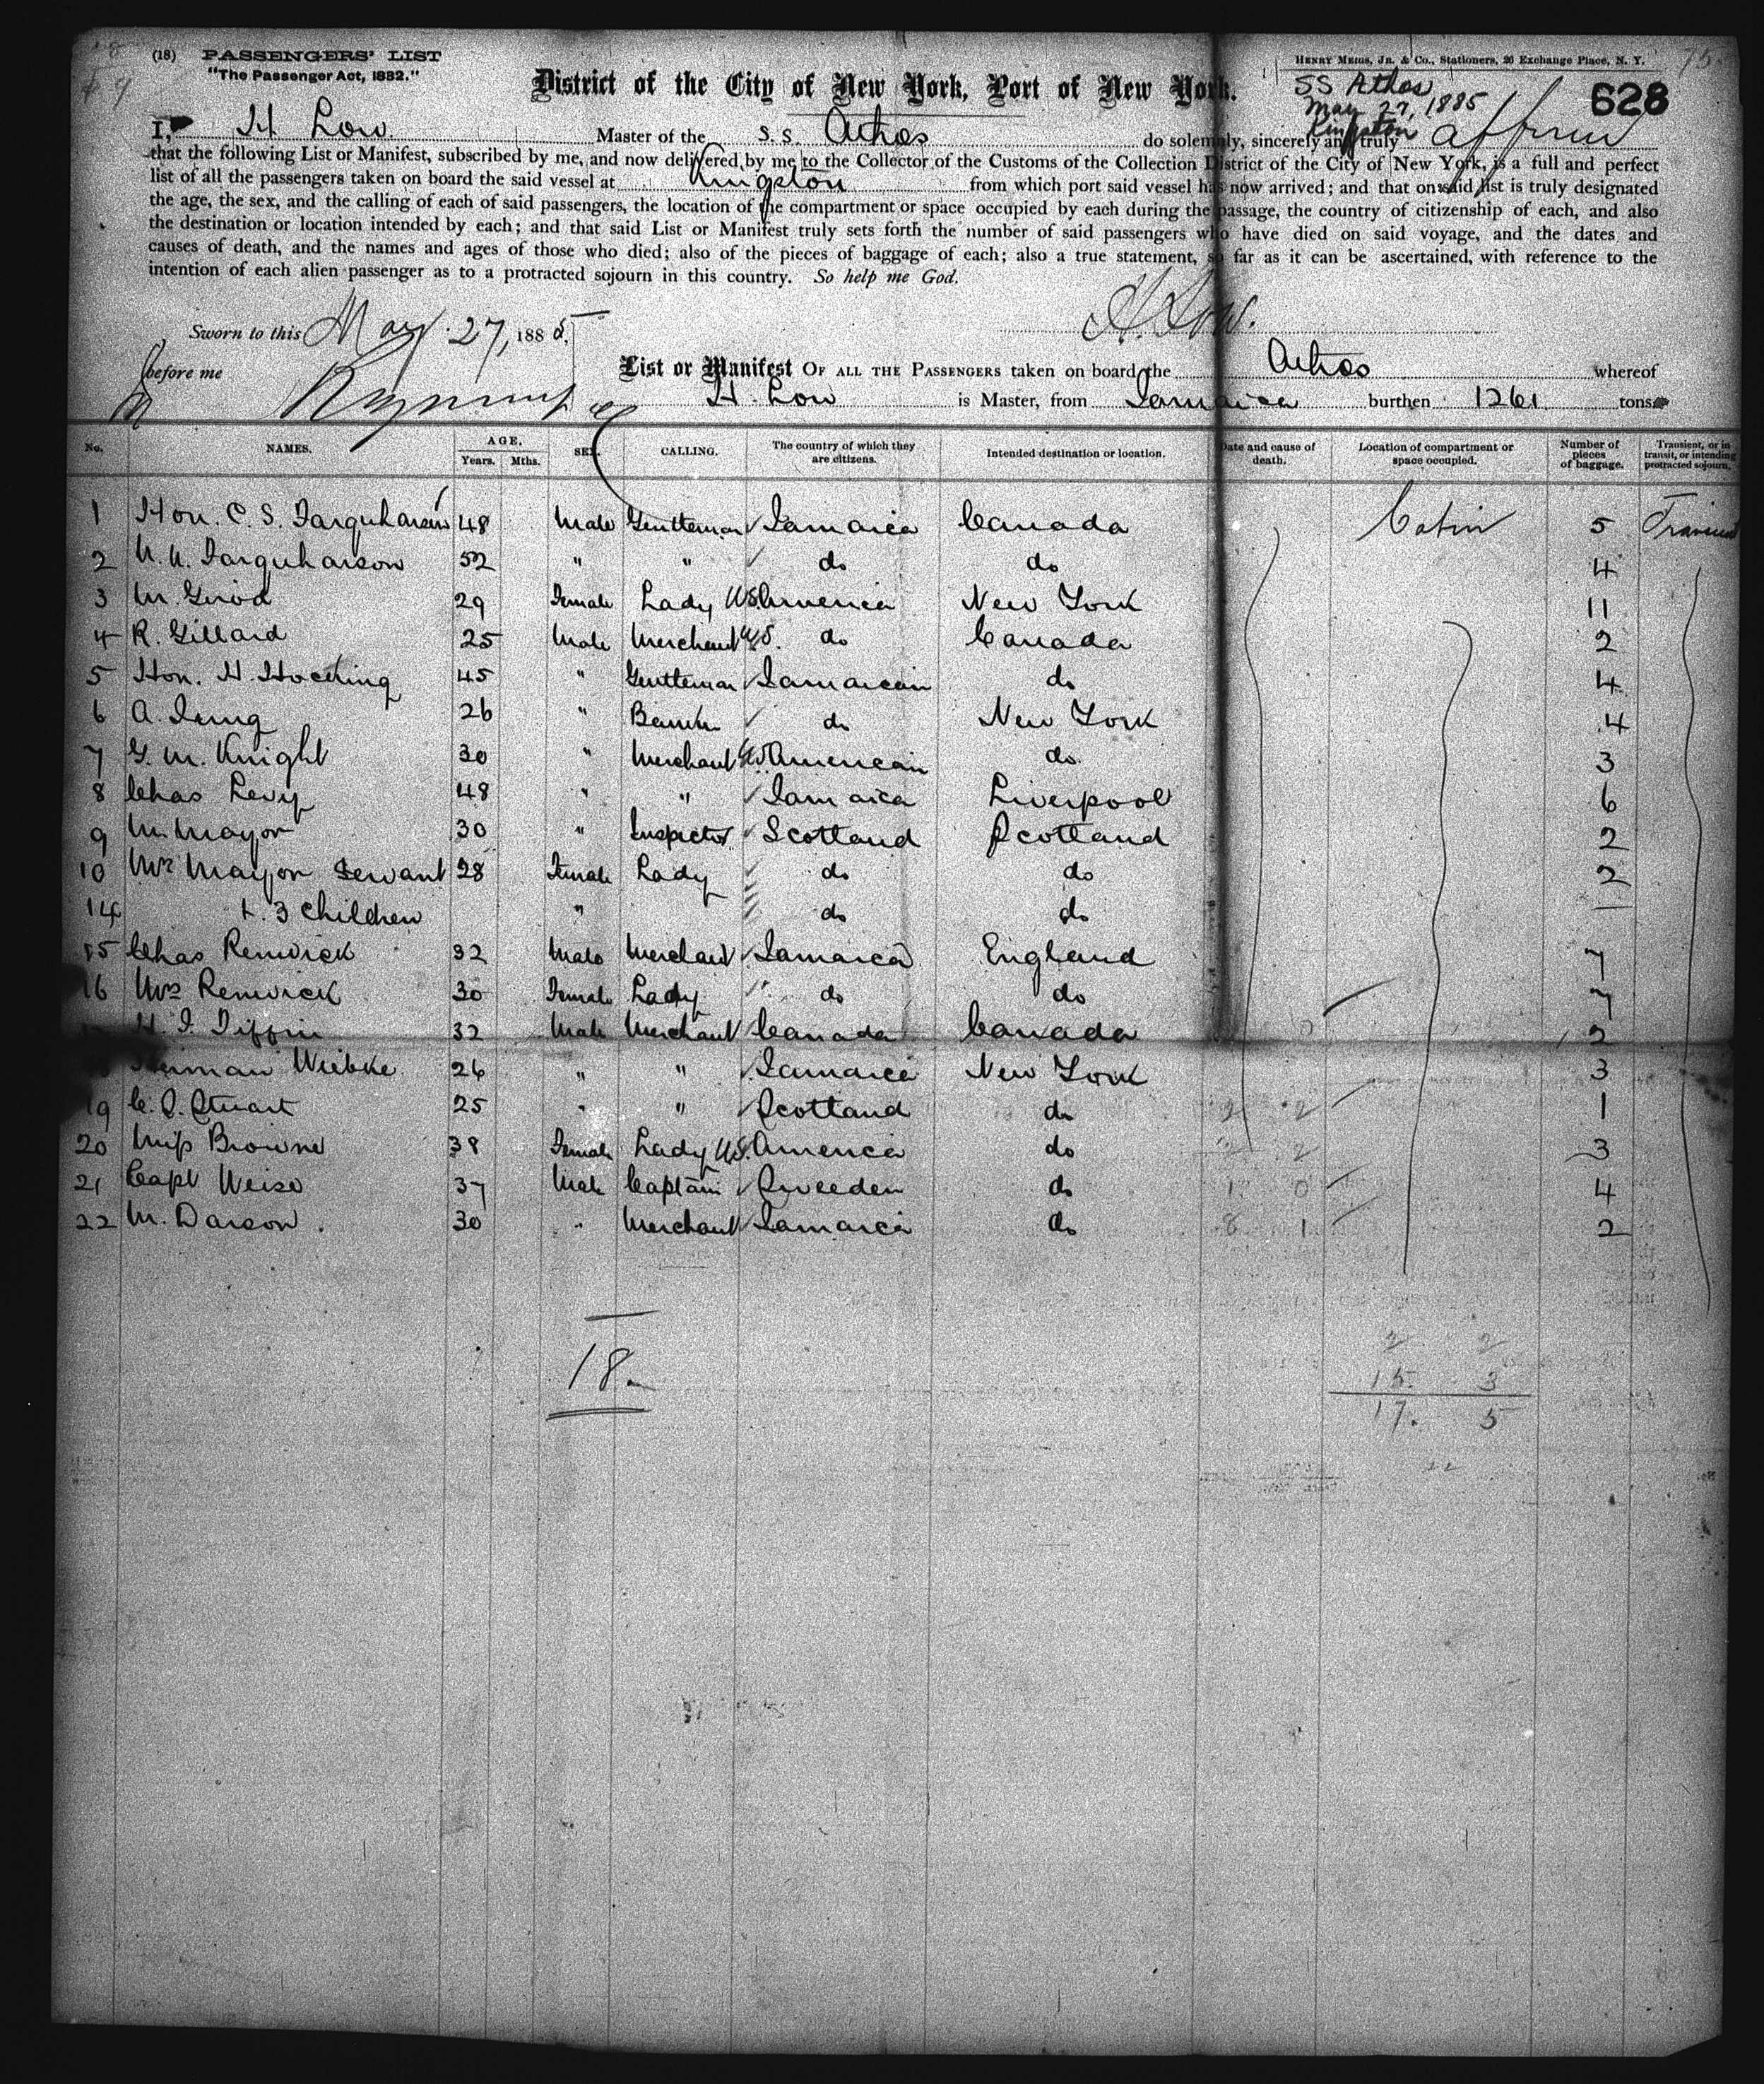 (18) PASSENGERS' LIST
"The Passenger Act, 1882."
HENRY MEIGS, JR. & CO., Stationers, 26 Exchange Place, N. Y.
District of the City of New York, Port of New York.
SS Athos
May 27, 1885
Kingston
628
I, H Low Master of the S.S. Athos do solemnly, sincerely and truly affirm
that the following List or Manifest, subscribed by me, and now delivered by me to the Collector of the Customs of the Collection District of the City of New York, is a full and perfect
list of all the passengers taken on board the said vessel at Kingston from which port said vessel has now arrived; and that on said list is truly designated
the age, the sex, and the calling of each of said passengers, the location of the compartment or space occupied by each during the passage, the country of citizenship of each, and also
the destination or location intended by each; and that said List or Manifest truly sets forth the number of said passengers who have died on said voyage, and the dates and
causes of death, and the names and ages of those who died; also of the pieces of baggage of each; also a true statement, so far as it can be ascertained, with reference to the
intention of each alien passenger as to a protracted sojourn in this country. So help me God.
H. Low.
Sworn to this May 27, 1885
before me
List or Manifest OF ALL THE PASSENGERS taken on board the Athos whereof
H. Low is Master, from Jamaica burthen 1261 tons
No. NAMES. AGE. Years. Mths. SEX. CALLING. The country of which they are citizens. Intended destination or location. Date and cause of death. Location of compartment or space occupied. Number of pieces of baggage. Transient, or in transit, or intending protracted sojourn.
1 Hon. C. S. Farquharson 48 Male Gentleman Jamaica Canada Cabin 5 Transient
2 Farquharson 52 " " do do 4
3 29 Female Lady US America New York 11
4 R. Gillard 25 Male Merchant U.S. do Canada 2
5 Hon. H. Hocking 45 " Gentleman Jamaican do 4
6 A. 26 " do New York 4
7 G. M. Knight 30 " Merchant US American do. 3
8 Chas Levy 48 " " Jamaica Liverpool 6
9 Mayor 30 " Inspector Scotland Scotland 2
10 Mrs Mayor Servant 28 Female Lady do do 2
14 & 3 Children " do do
15 Chas Renwick 32 Male Merchant Jamaica England 7
16 Mrs Renwick 30 Female Lady do do 7
Tiffin 32 Male Merchant Canada Canada 2
Wiebke 26 " " Jamaica New York 3
19 C. S. Stuart 25 " " Scotland do 1
20 Miss Browne 38 Female Lady U.S. America do 3
21 Capt Weise 37 Male Captain Sweeden do 4
22 M. Darson. 30 " Merchant Jamaica do 2
18
2 2
15. 3
17. 5
22